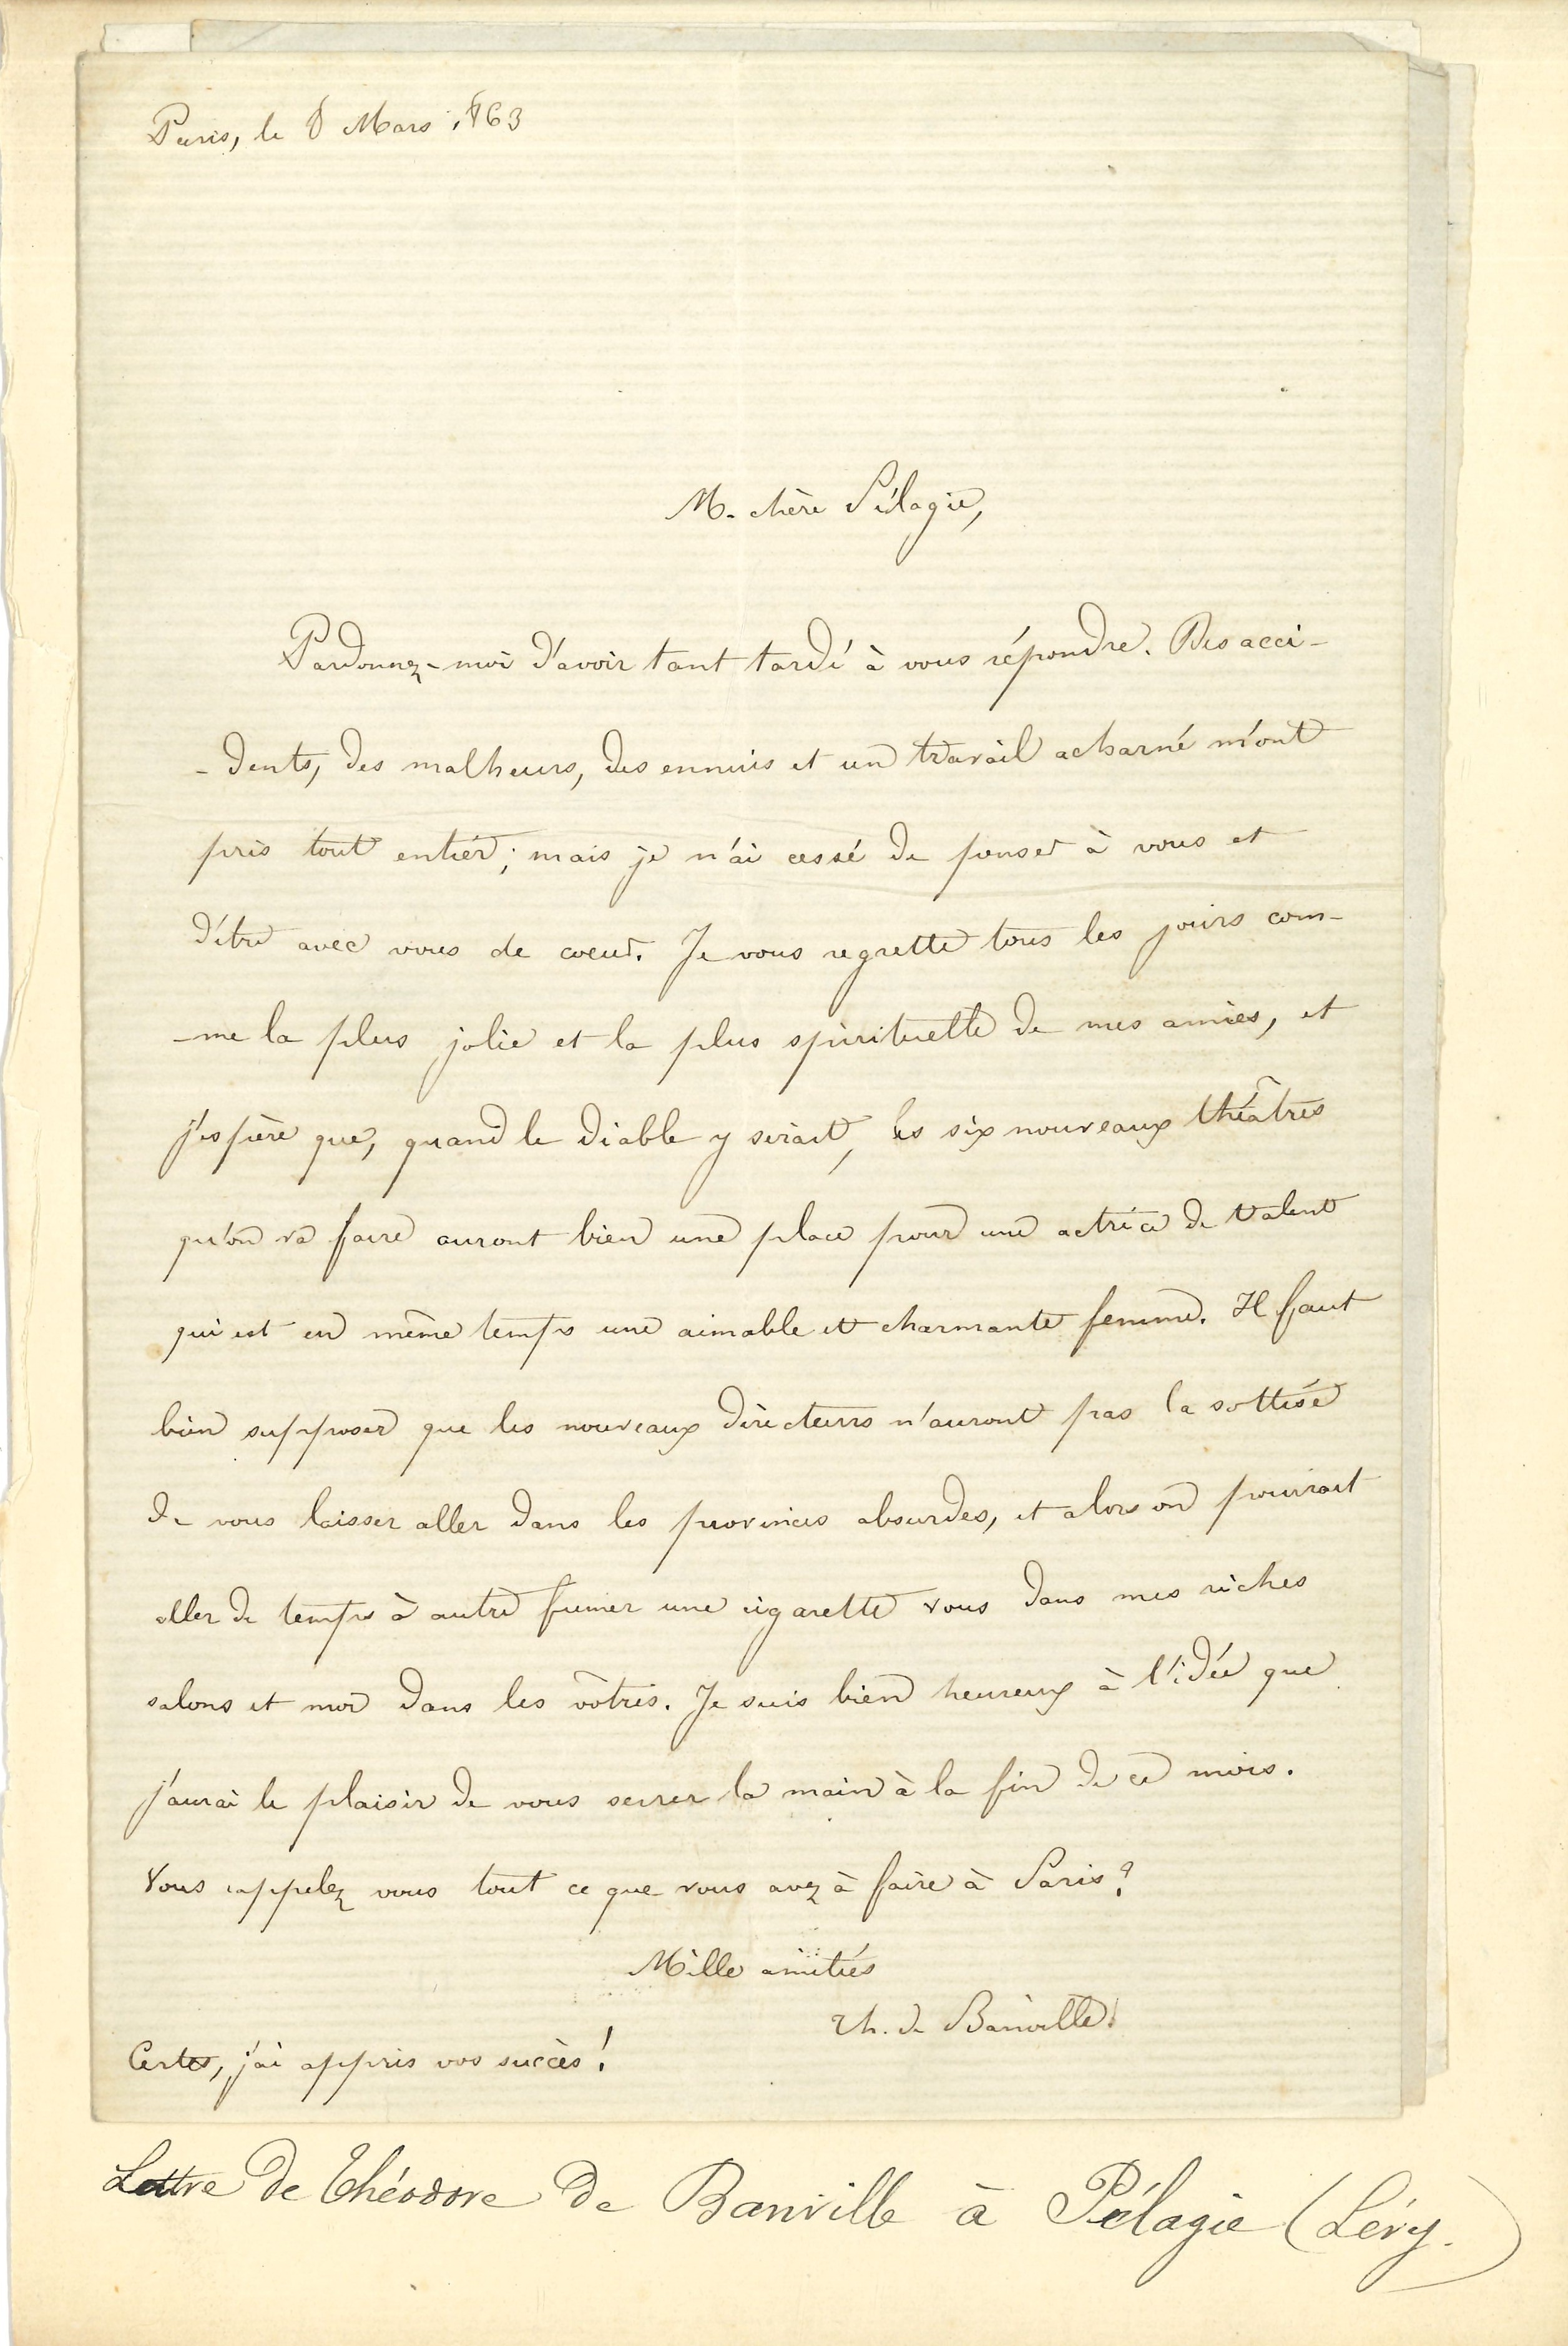 Paris, le 8 Mars 1863
Ma chère Pélagie,
Pardonnez-moi d'avoir tant tardé à vous répondre. Des acci-
-dents, des malheurs, des ennuis et un travail acharné m'ont
pris tout entier; mais je n'ai cessé de penser à vous et
d'être avec vous de coeur. Je vous regrette tous les jours com-
-me la plus jolie et la plus spirituelle de mes amies, et
j'espère que, quand le diable y serait, les six nouveaux théâtres
qu'on va faire auront bien une place pour une actrice de talent
qui est en même temps une aimable et charmante femme. Il faut
bien supposer que les nouveaux directeurs n'auront pas la sottise
de vous laisser aller dans les provinces absurdes, et alors on pourrait
aller de temps à autre fumer une cigarette vous dans mes riches
salons et moi dans les vôtres. Je suis bien heureux à l'idée que
j'aurai le plaisir de vous serrer la main à la fin de ce mois.
Vous rappelez vous tout ce que vous avez à faire à Paris?
Mille amitiés
Th. de Banville.
Certes, j'ai appris vos succès!
Lettre de Théodore de Banville à Pélagie (Lévy.)